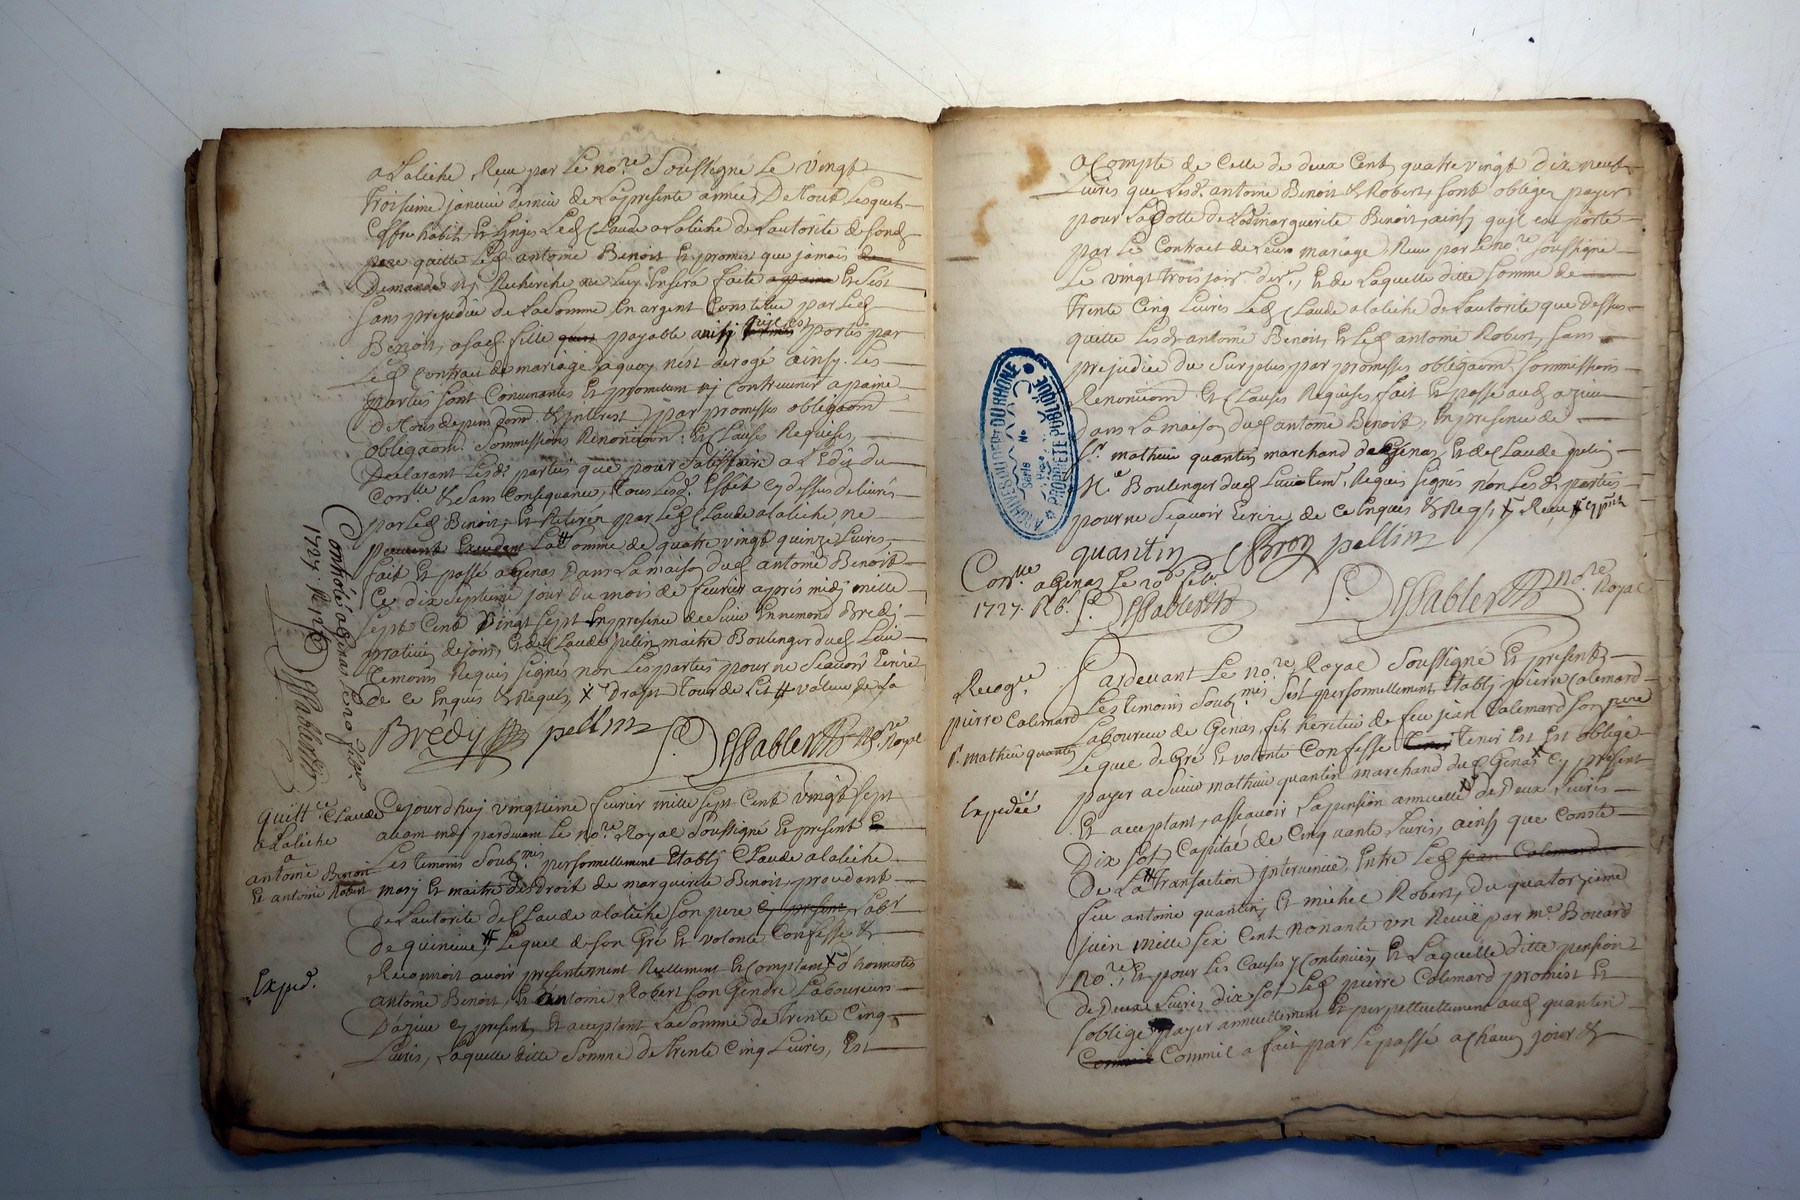 alaliche Reçu par le no.re Soussigné le vingt
troisieme janvier dernier de la presente année, De tout lesquels
Coffre habits et linges led Claude alaliche de lautorité de sond
pere quitte led antoine Benoit et promis que jamais de
Demande ny Recherche ne luy en sera faite a paine et cest
sans prejudice de la somme en argent Constituée par led
Benoit, a sad fille payable ainsy quil est portés par
led contrat de mariage a quoy nest derogé ainsy les
parties sont Convenantes et promettent ny contrevenir a paine
de tous depens dom. & interest par promesses obligaõn
obligaõn Sommissions Renonciaõn et clauses Requises,
Declarant lesd. parties que pour satisffaire a l Edit du
Con.lle & sans Consequance, tous lesd. Effet cy dessus delivrés
par led Benoit, et Retirés par led Claude alaliche, ne
peuvent Exceder la # omme de quatre vingt quinze livres,
fait et passé a Genas dans la maison dud antoine Benoit
Ce dix septieme jour du mois de fevrier aprés midy mille
sept cent vingt sept en presence de sieur Ennemond Bredy
pratiticien dejons, et de Claude pelin maitre Boulanger dud lieu
temoins Requis signés non les parties pour ne sçavoir Ecrire
de ce Enquis & Requis, X Drap et tour de lit # valeur de la
Brédy pellin Dessablettes No.re Royal
Controlé a genas, le 20 fevr
1727. R.
Dessablettes
quitt.ce Claude
alaliche
a
antoine Benoit
et antoine Robert
Cejourdhuy vingtieme fevrier mille sept cent vingt sept
avant midy pardevant le no.re Royal Soussigné et present
les temoins Soub.nmés personnellement Etably Claude alaliche
mary et maitre des droit de marguerite Benoit, procedant
de lautorité de Claude alaliche son pere cy present, Lab.r
de quineuve # lequel de son Gré et volonté Confesse &
Reconnoit avoir presentement Reellement et Comptant X d'honnestes
antoine Benoit, et antoine Robert son Gendre Laboureurs
D'azieu cy present, et acceptant la somme de trente Cinq
livres, laquelle ditte somme de trente cinq livres, est
Exped.
a Compte de Celle de deux Cent quatre vingt dix neuf
Livres que lesd. antoine Benoit & Robert, sont obligés payer
pour la dotte de lad marguerite Benoit, ainsy quil est porté
par le Contrat de leur mariage Reçu par le no.re soussigné
le vingt trois janv. der., et de laquelle ditte somme de
trente Cinq livres led Claude alaliche de lautorité que dessus
quitte lesd. antoine Benoit, et led antoine Robert, sans
prejudice du Surplus par promesses obligaõn Sommissions
Renonciaõn et Clauses Requises, fait et passé aud azieu
dans la maison dud antoine Benoit, en presence de
s.r mathieu quantin marchand de Genas, et de Claude pelin
M.e Boulanger dud lieu tem. Requis signés non les d. parties
pour ne sçavoir Ecrire de ce Enquis & Req.
quantin pellin
Dessablettes no.re Royal
Con.lle a Genas le 20.e fev.
1727. R.
Dessablettes
Recog.ce
pierre Calemard
s.r mathieu quantin
Expediée
Pardevant le no.re Royal Soussigné et presents
les temoins Soub.nmés s'est personnellement Etably pierre Calemard
Laboureur de Genas, fils heritier de feu jean Calemard son pere
Lequel de Gré et volonté confesse tenir Est et obligé
payer a sieur mathieu quantin marchand dud Genas X cy present
Et acceptant, assavoir la pension annuelle X de Deux livres
Dix sols, Capital de Cinquante livres, ainsy que conste
De la # transaction intervenue, Entre led jean Calemard
feu antoine quantin, et michel Robert, du quatorzieme
juin mille six Cent nonante un Reçüe par m.e Bouard
No.re, et pour les causes y contenües, et laquelle ditte pension
de Deux livres, dix sols led pierre Calemard promest et
s'oblige payer annuellement et perpettuellement aud quantin
Comme Comme il a fait par le passé a chacun jour &
ARCHIVES DU DEP.T DU RHONE
PROPRIÉTÉ PUBLIQUE
Série
No